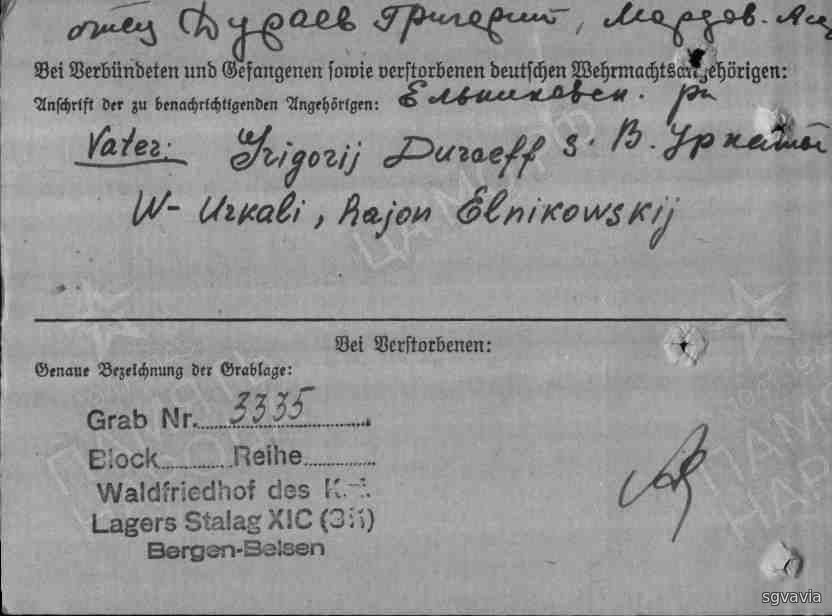 отец Дураев Григорий, Мордов. Асс
Bei Verbündeten und Gefangenen sowie verstorbenen deutschen Wehrmachtsangehörigen:
Anschrift der zu benachrichtigenden Angehörigen: Ельниковск. рн
Vater: Grigorij Duraeff з. В. Уркат
W- Urkali, Rajon Elnikowskij
Bei Verstorbenen:
Genaue Bezeichnung der Grablage:
Grab Nr. 3335
Block Reihe
Waldfriedhof des
Lagers Stalag XIC (311)
Bergen-Belsen
ЦАМО РФ
sgvavia